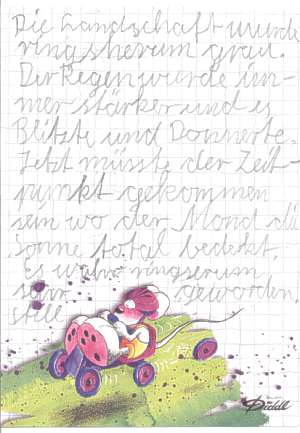 Die Landschaft wurde
ringsherum grau.
Der Regen wurde im-
mer stärker und es
Blitzte und Donnerte.
Jetzt müsste der Zeit-
punkt gekommen
sein wo der Mond die
sonne total bedekt,
es ringserum
geworden
stille
Diddl